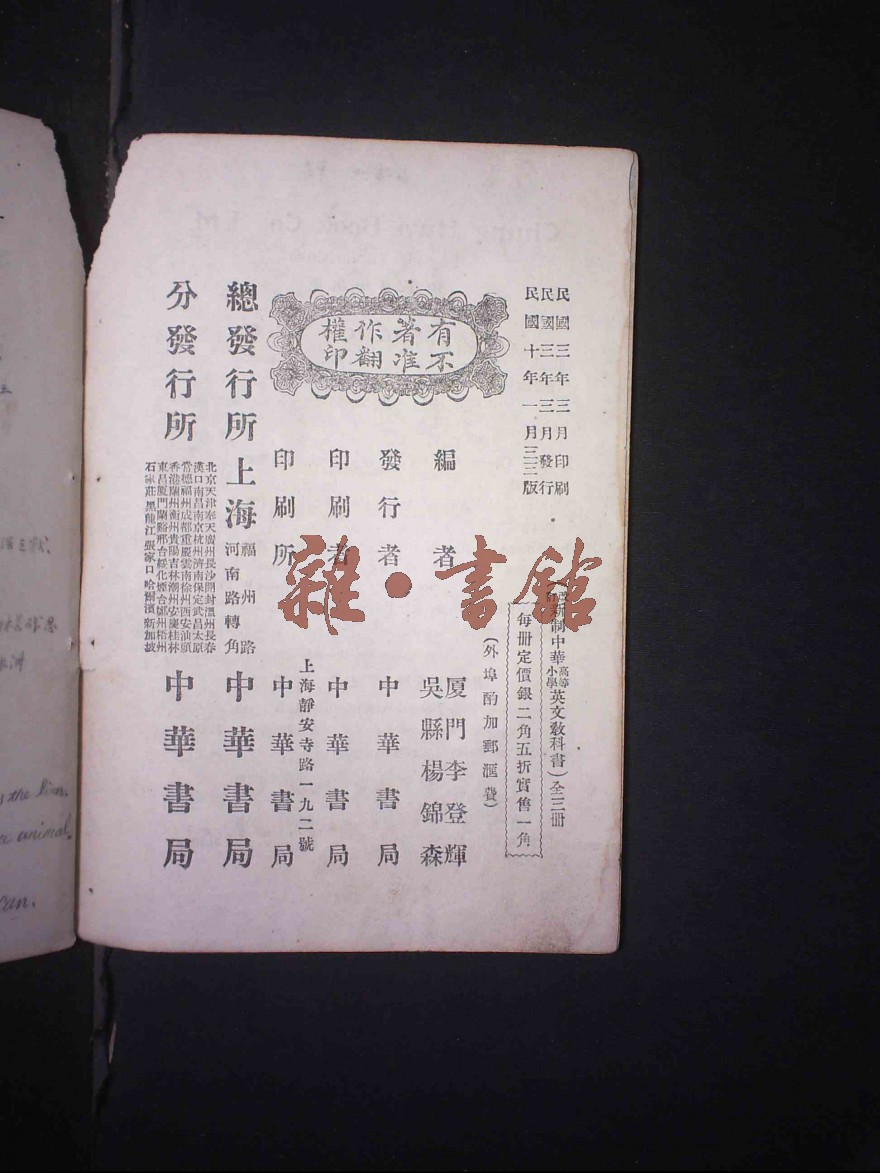 民國三年三月印刷
民國三年三月發行
民國十年一月三三版
新制中華高等小學英文教科書）全三冊
每冊定價銀二角五折實售一角
（外埠酌加郵滙費）
有著作權
不准翻印
編者
厦門李登輝
吳縣楊錦森
發行者 中華書局
印刷者 中華書局
上海靜安寺路一九二號
印刷所 中華書局
總發行所 上海 福州路河南路轉角 中華書局
分發行所
北京天津奉天廣州長沙開封溫州長春
漢口南昌南京杭州濟南保定武昌太原
常德福州成都重慶雲南徐州西安汕頭
香港蘭州衡州貴陽吉林潮州安慶桂林
東昌厦門蘭谿邢台綏化煙台鄭州梧州
石家莊黑龍江張家口哈爾濱新加坡
中華書局
雜·書館
the lion.
animal.
can.